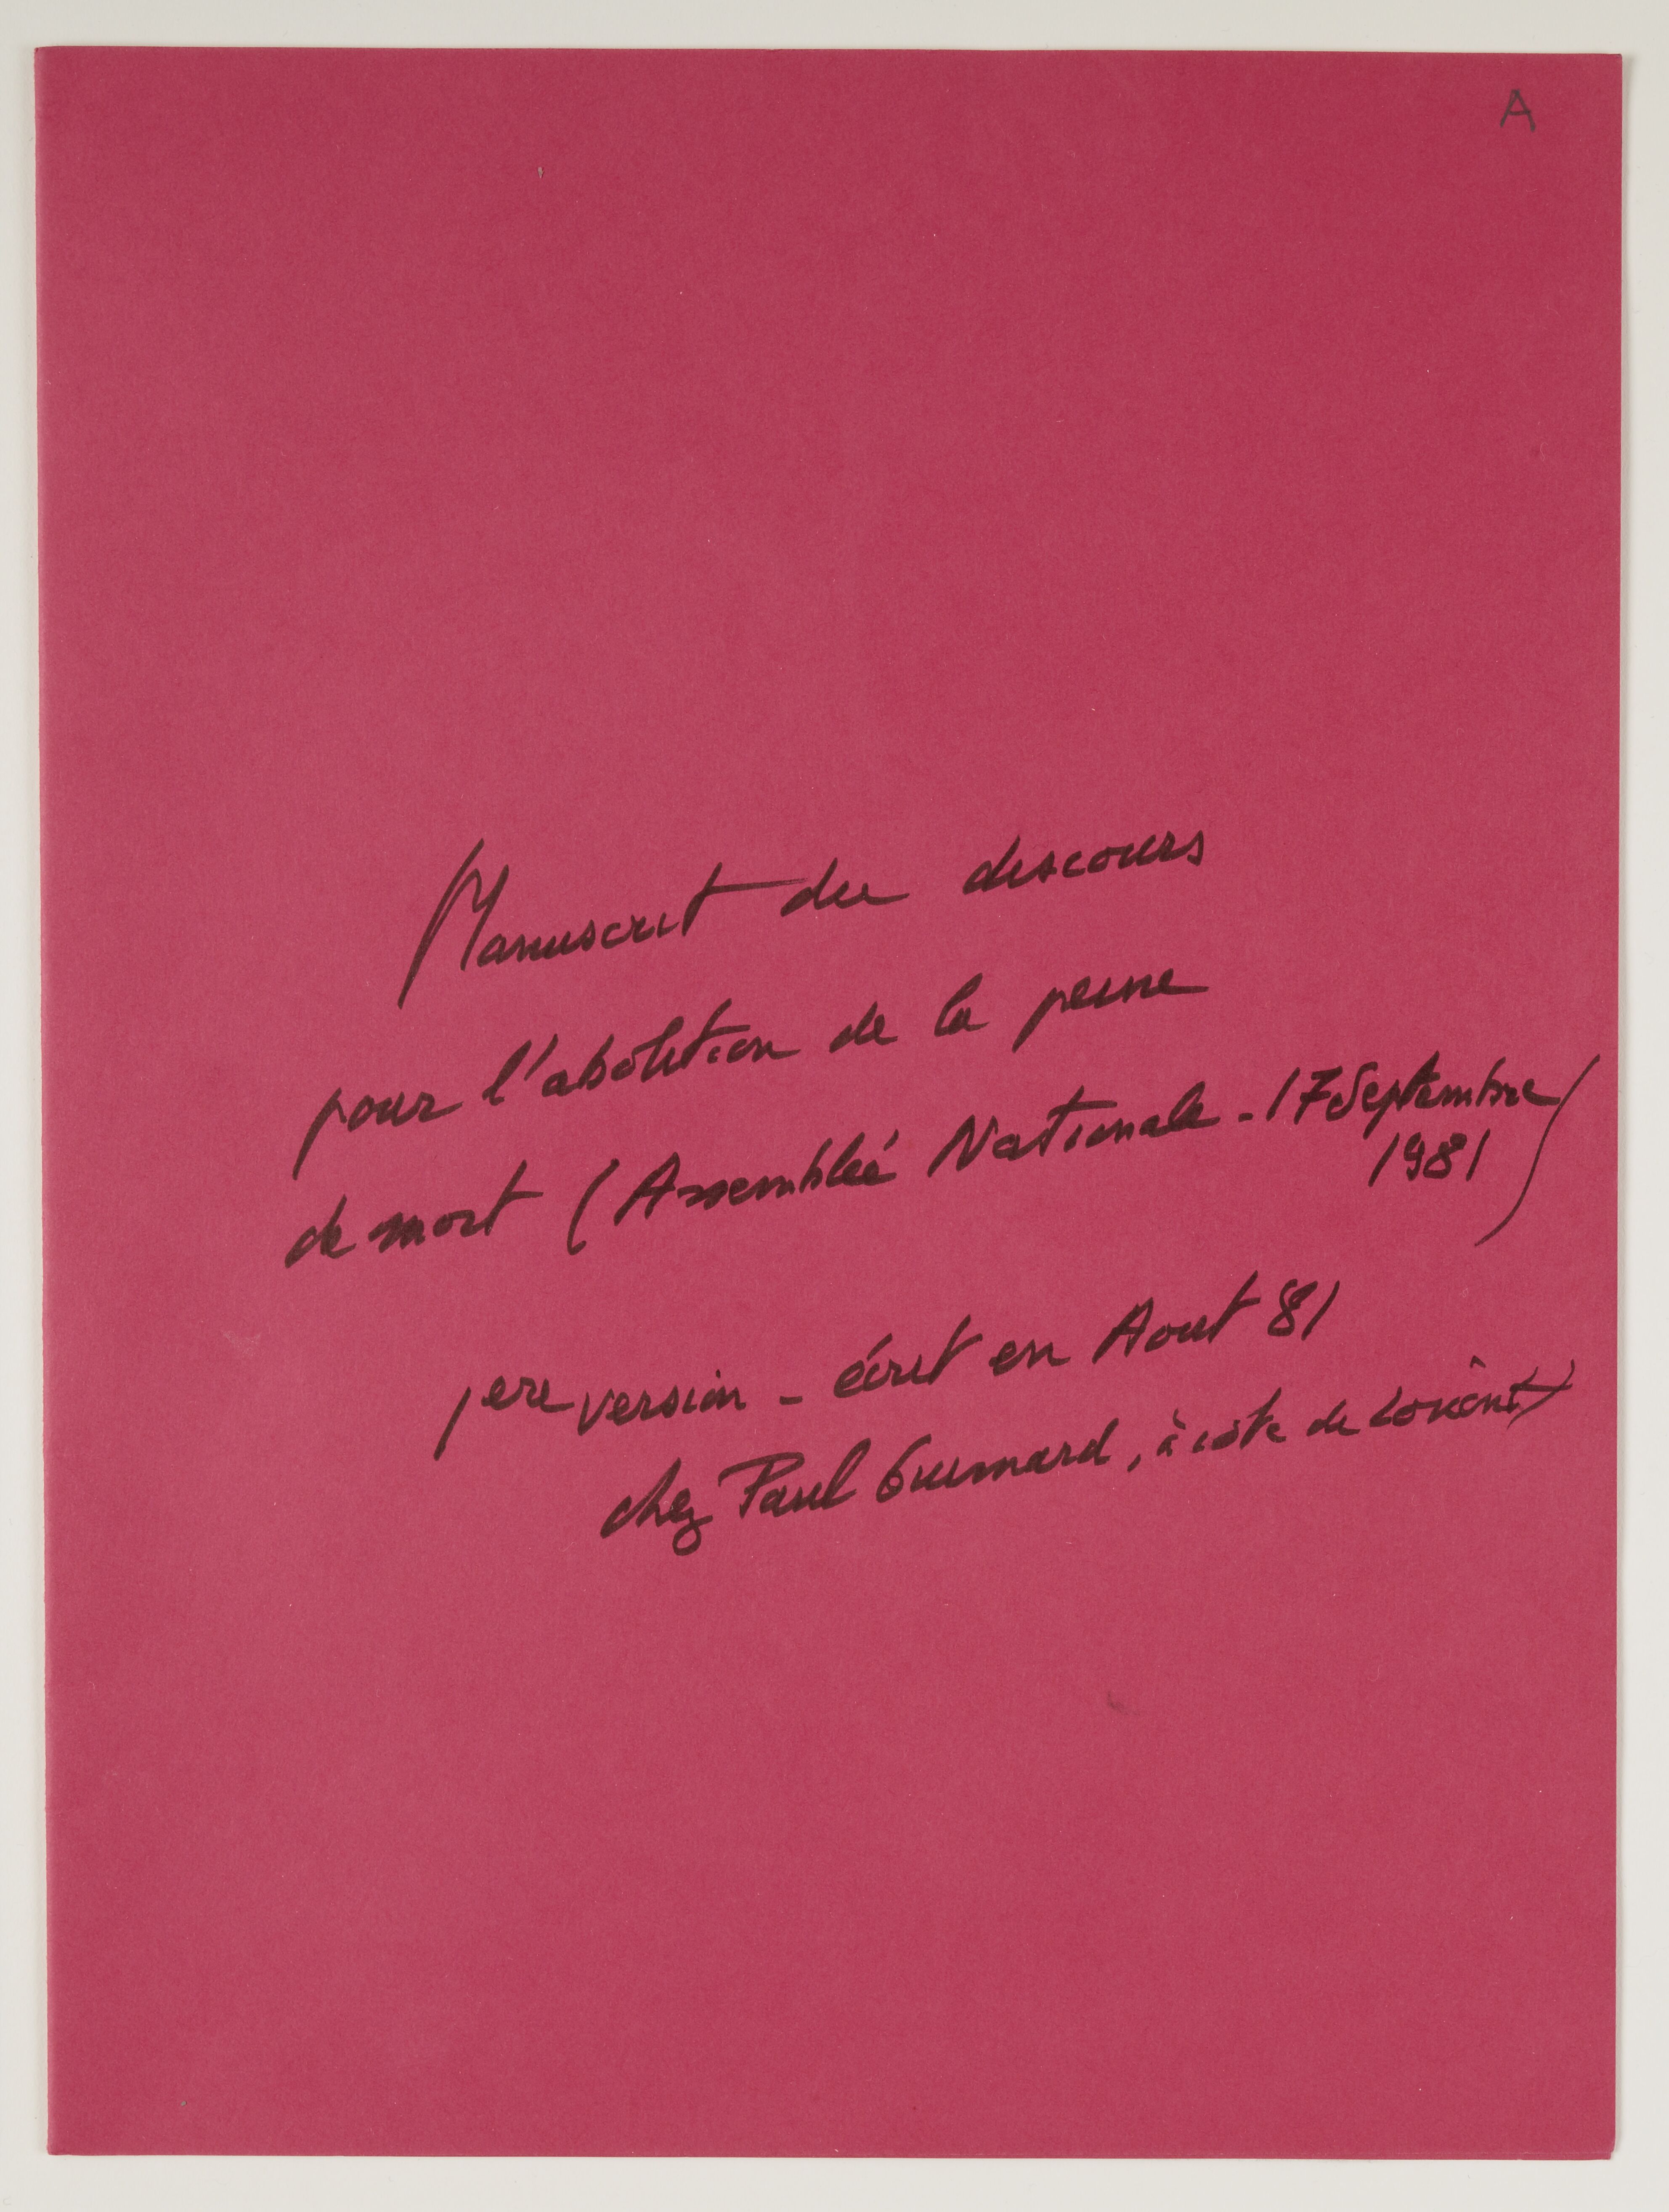 A
Manuscrit du discours
pour l'abolition de la peine
de mort (Assemblée Nationale - 17 Septembre
1981)
1ere version - écrit en Aout 81
chez Paul Guimard, à côte de Lorient)